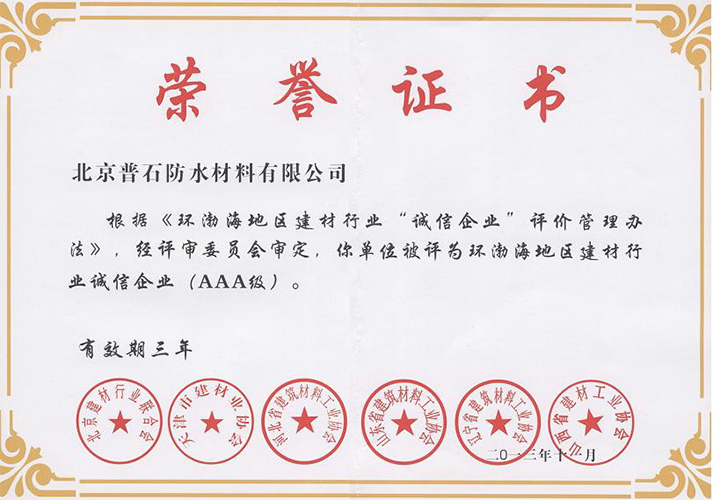 荣誉证书
北京普石防水材料有限公司
根据《环渤海地区建材行业“诚信企业”评价管理办
法》，经评审委员会审定，你单位被评为环渤海地区建材行
业诚信企业（AAA级）。
有效期三年
北京建材行业联合会
天津市建材业协会
河北省建筑材料工业协会
山东省建筑材料工业协会
辽宁省建筑材料工业协会
山西省建材工业协会
二〇一三年十一月